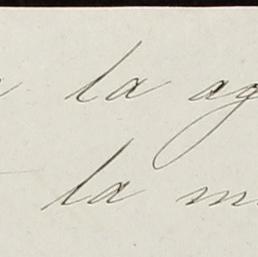 la ag
la m